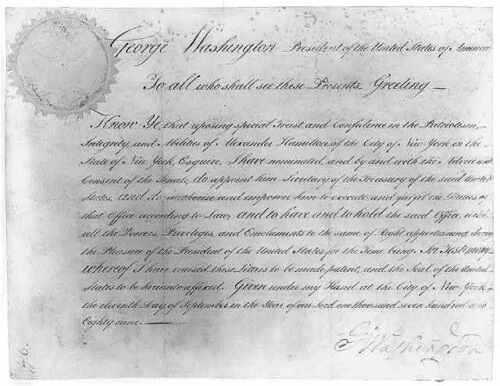 George Washington President of the United States of America
To all who shall see these Presents Greeting —
Know Ye, that reposing special Trust and Confidence in the Patriotism,
Integrity, and Abilities of Alexander Hamilton of the City of New York in the
State of New York, Esquire, I have nominated, and by and with the Advice and
Consent of the Senate, do appoint him Secretary of the Treasury of the said United
States, and do authorize and empower him to execute and fulfil the Duties of
that Office according to Law; and to have and to hold the said Office, with
all the Powers, Privileges, and Emoluments to the same of Right appertaining during
the Pleasure of the President of the United States for the Time being. In Testimony
whereof I have caused these Letters to be made patent, and the Seal of the United
States to be hereunto affixed. Given under my Hand at the City of New York
the eleventh Day of September in the Year of our Lord one thousand seven hundred and
Eighty nine. —
G. Washington